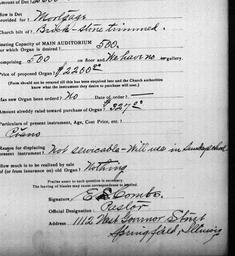 How is Debt
provided for? Mortgage
Church built of? Brick - stone trimmed.
Seating Capacity of MAIN AUDITORIUM 500.
for which Organ is desired?
comprising 500 on floor and We have no gallery
Price of proposed Organ? $2200.00
(Form should not be returned till this has been inquired into and the Church authorities
know what the instrument they desire to purchase will cost.)
Has new Organ been ordered? No Date of order
$
Particulars of present instrument, Age, Cost Price, etc.
Piano
Reason for displacing
present instrument? Not servicable - Will use in Sunday school
How much is to be realized by sale
of (or from insurance on) old Organ? Nothing
Precise answer to each question is necessary.
The leaving of blanks may cause correspondence to be delayed.
Signature, E. E. Combs.
Official Designation: Pastor
Address: 1112 West Govnor Street
Springfield, Illinois